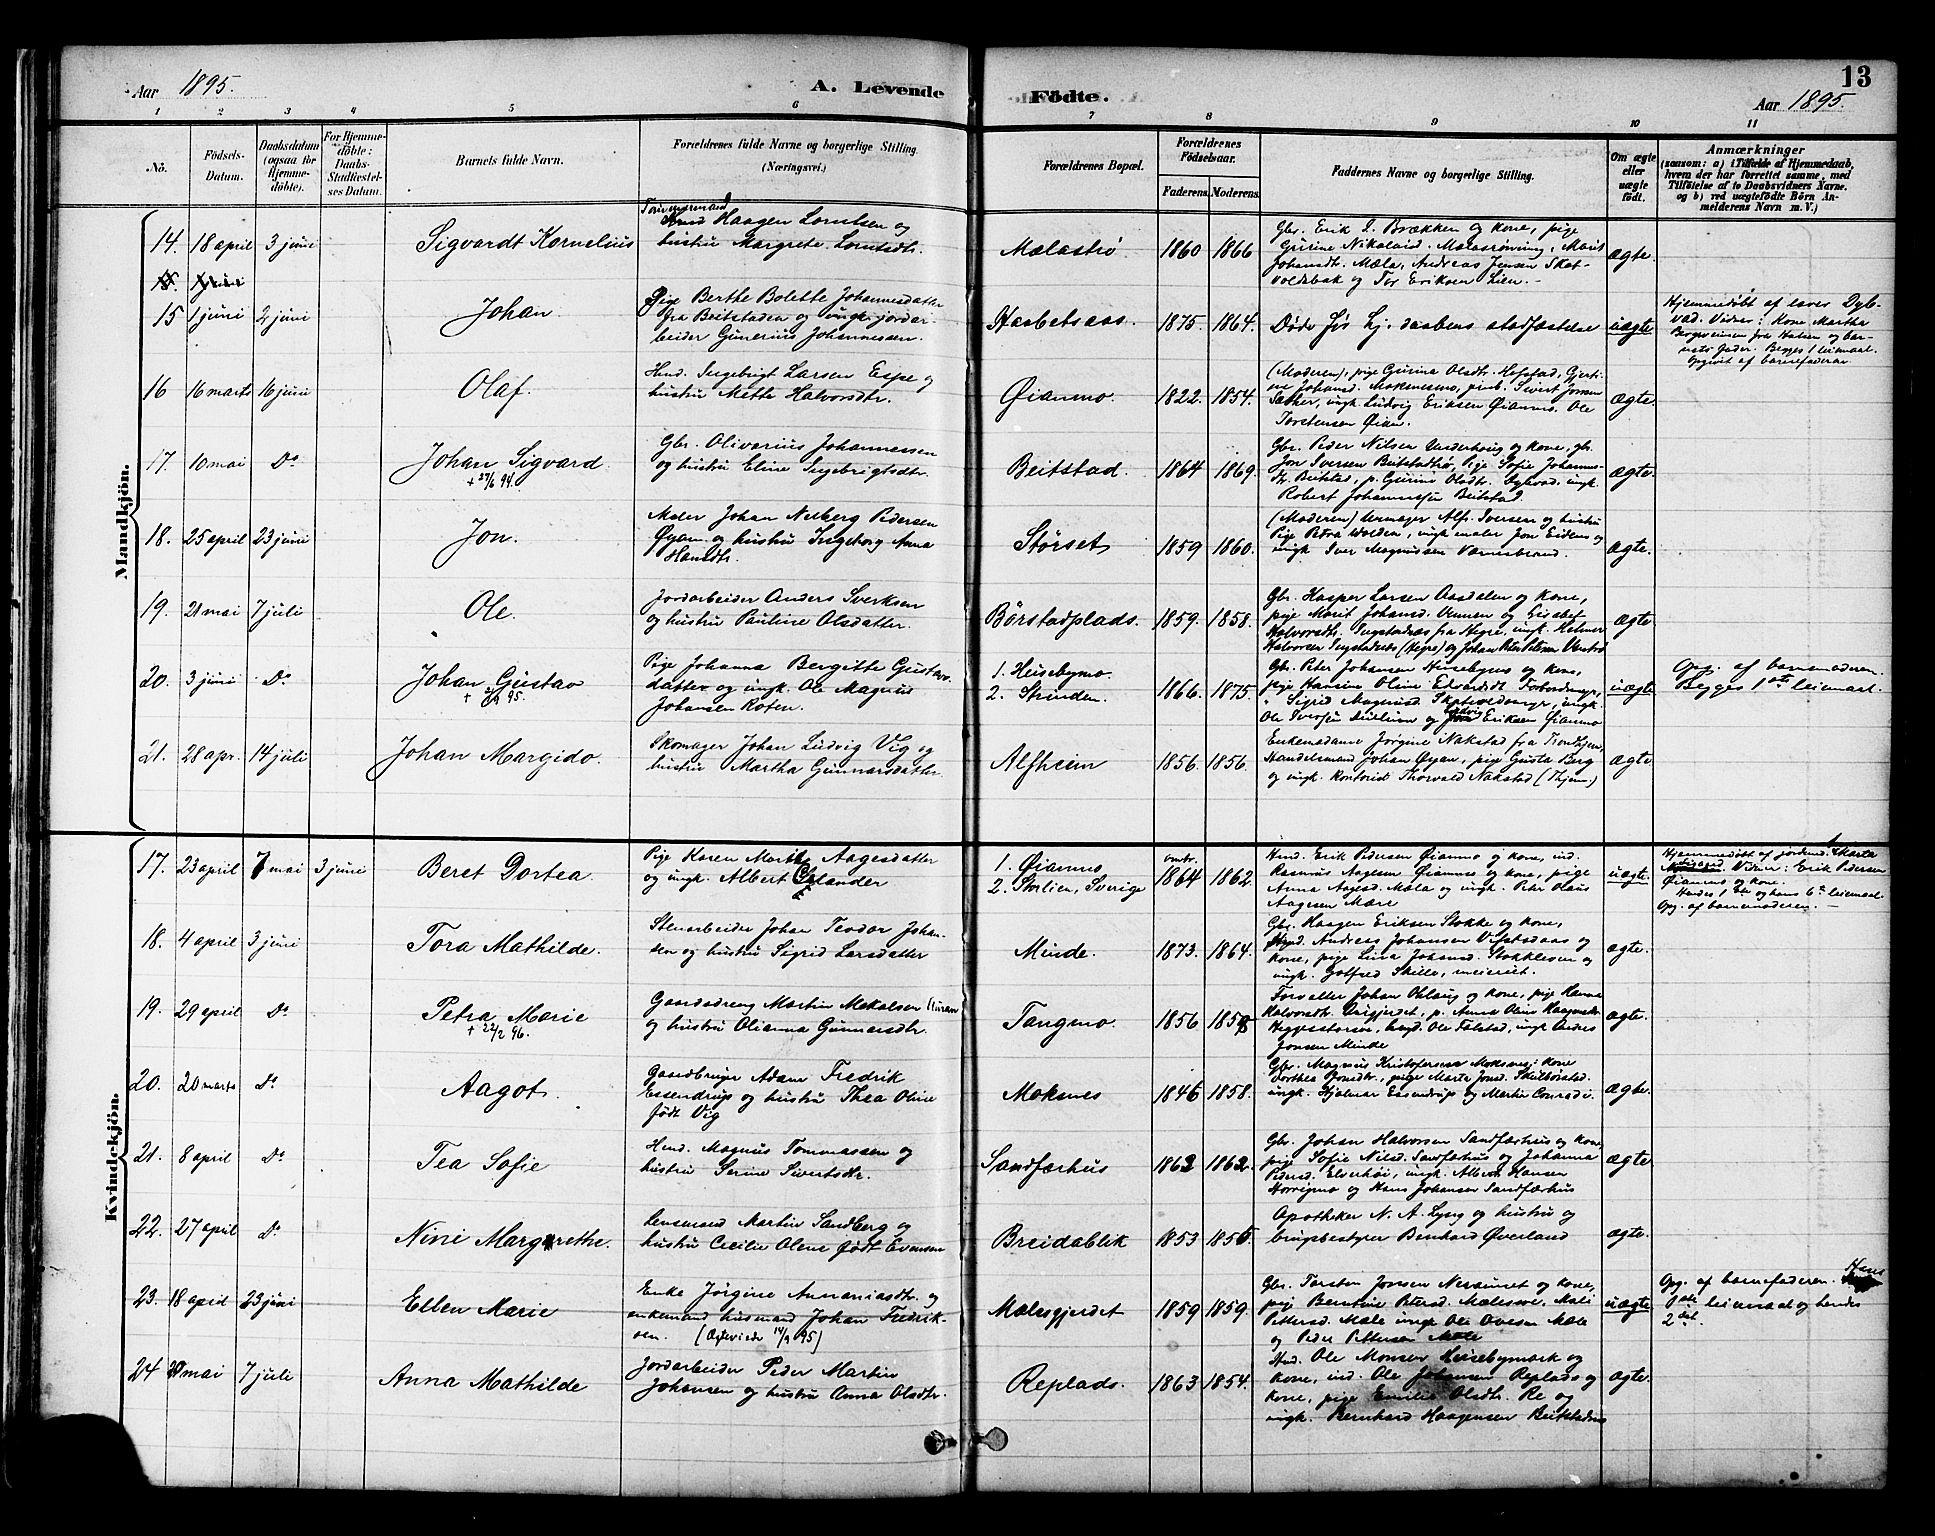 Aar 1895.
A. Levende
Födte.
13
Aar 1895.
1 2 3 4 5 6 7 8 9 10 11
No.
Födsels-
Datum.
Daabsdatum
(ogsaa for
Hjemme-
döbte).
For Hjemme-
döbte:
Daabs-
Stadfæstel-
ses Datum.
Barnets fulde Navn.
Forældrenes fulde Navne og borgerlige Stilling.
(Næringsvei.)
Forældrenes Bopæl.
Forældrenes
Födselsaar.
Faderens. Moderens.
Faddernes Navne og borgerlige Stilling.
Om ægte
eller
uægte
födt.
Anmærkninger
(saasom: a) i Tilfælde af Hjemmedaab,
hvem der har forrettet samme, med
Tilföielse af to Daabsvidners Navne.
og b) ved uægtefödte Börn An-
melderens Navn m. V.)
Mandkjön.
14. 18 april 3 juni
Sigvardt Kornelius
Haagen Lorntsen og
hustru Margrete Lorntsdtr.
Mælastrø
1860 1866
Gbr. Erik I. Brækken og kone, pige
Johansdt. Mæla, Andreas Jensen Skat-
voldsbak og Tor Eriksen Lien.
ægte.
15 1 juni 2 juni
Johan
Pige Berthe Bolette Johannesdatter
fra Beitstaden og ungk. jordar-
beider Gunerius Johannesen.
1875. 1864.
Døde før hj. daabens stadfæstelse
uægte
Hjemmedøbt af lærer Dyb-
vad. Vidner: Kone Martha
fra Hatten og bar-
nets fader. Begges 1 leiermaal.
Opgivet af barnefaderen
16 16 marts 16 juni
Olaf
Hmd. Ingebrigt Larsen Espe og
hustru Mette Halvorsdtr.
Øianmo.
1822. 1854.
(Moderen), pige Gurina Olsdt. Hofstad, Gjerti-
ne Johansd. Moksnesmo, Sivert Jonsen
Sæther, ungk. Ludvig Eriksen Øianmo. Ole
Torstensen Øian.
ægte.
17. 10 mai Do
Johan Sigvard.
Gbr. Oliverius Johannessen
og hustru Eline Ingebrigtsdtr.
Beitstad.
1864 1869.
Gbr. Peder Nilsen Underhaug og kone, gb.
Jon Iversen Beitstadhø, pige Sofie Johannes-
dt. Beitstad, p. Gurine Olsdtr. Dybvad, ungk.
Robert Johannessen Beitstad
ægte.
18. 25 april 23 juni
Jon.
Maler Johan Nilberg Pedersen
Øyan og hustru Ingeborg Anna
Hansdtr.
Størset
1859 1860.
(Moderen) Alf. Iversen og hustru
Pige Petra Wolden, ungk maler Jon Eidem og
ungk. Iver Magnussen Værnesbrand.
ægte.
19. 21 mai 7 juli
Ole.
Jordarbeider Anders Sverksen
og hustru Pauline Olsdatter.
Børstadplads.
1859. 1858.
Gbr. Kasper Larsen Aasdalen og kone,
pige Marit Johansd. og Lisabet
Halvorsdtr. Ingstadnæs fra Hegre, ungk. Helmer
Halvorsen Ingstadnæs (Hegre) og Johan
ægte.
20. 3 juni Do
Johan Gustav
Pige Johanna Bergitte Gustav-
datter og ungk. Ole Magnus
Johansen Roten.
1. Husebymo.
2. Strinden.
1866. 1875.
Gbr. Peter Johansen Husebymo og kone,
pige Hansine Oline Edvardsdt. Forbordmyr,
" Sigrid Magnusd. Skatvoldmyr, ungk.
Ole Eriksen Øianmo
uægte
Opg. af barnemoderen
Begges 1ste leiermaal.
21. 28 apr. 14 juli
Johan Margido.
Skomager Johan Ludvig Vig og
hustru Martha Gunnarsdatter.
Alfheim
1856. 1856.
Enkemadame Jørgine Nakstad fra Trondhjem,
Handelsmand Johan Øyan, pige Gusta Berg
og ungk. kontorist Thorvald Nakstad (Thjem.)
ægte.
Kvindekjön.
17. 23 april 7 mai 3 juni
Beret Dortea.
Pige Karen Aagesdatter
og ungk. Albert
1. Øianmo
2. Storlien, Sverige
omtr.
1864 1862.
Hmd. Erik Pedersen Øianmo og kone, ind.
Rasmus Aagesen Øianmo og kone, pige
Anna Aagesd. Mæla og ungk. Peter Olaus
Aagesen Mære
uægte
Hjemmedøbt af jordmd. Marta
Vidner: Erik Pedersen
Øianmo og kone.
Hendes 1ste og hans 6te leiermaal.
Opg. af barnemoderen.
18. 4 april 3 juni
Tora Mathilde.
Stenarbeider Johan Teodor Johan-
sen og hustru Sigrid Larsdatter
Minde.
1873. 1864.
Gbr. Haagen Eriksen Stokke og kone,
Andreas Johansen og
kone, pige Lina Johansd. Stokkleiven og
ungk. Gotfred Skille, meieriet.
ægte.
19. 29 april Do
Petra Marie
+ 22/2 96.
Gaardsdreng Martin Mekalsen
og hustru Olianna Gunnarsdtr.
Tangmo.
1856
Forvalter Johan og kone, pige Hanna
Halvorsdt. p. Anna Oline
ungk Anders
Jonsen Minde
ægte.
20. 20 marts Do
Aagot.
Gaardbruger Adam Fredrik
Essendrup og hustru Thea Oline
født Vig
Moksnes
1846 1858.
Gbr. Magnus Kristofersen Moksnes, kone
Dorthea pige Marta Jonsd. Skilbørstad.
ungk. Hjalmar Essendrup og Martin Conradi.
ægte.
21. 8 april Do
Tea Sofie
Hmd. Magnus Tommassen og
hustru Serine Sivertsdtr.
Sandfærhus
1862 1862.
Gbr. Johan Halvorsen Sandfærhus og kone
pige Sofie Nilsd. Sandfærhus og Johanna
Pedersd. Elverhøi, ungk. Albert Hansen
og Hans Johansen Sandfærhus
ægte
22. 27 april Do
Nini Margrethe.
Lensmand Martin Sandberg og
hustru Cecilie Olene født Evensen
Breidablik
1853 1855.
Apotheker N. A. Lyng og hustru og
brugsbestyrer Bernhard Øverland
ægte.
23. 18 april 23 juni
Ellen Marie
Enke Jørgine Annaniasdtr. og
enkemand husmand Johan Fredrik-
sen. (Ægteviede 14/9 95)
Mælesgjerdet
1859 1859.
Gbr. Torsten Jonsen og kone,
pige Berntine Petersd. Mælesve, Mali
Pettersd. Mæle ungk Ole Ovesen Mæle
og Peder Pettersen Mæle
uægte
Opg. af barnefaderen. Hans
1ste leiermaal og hendes
2det.
24 mai 7 juli
Anna Mathilde
Jordarbeider Peder Martin
Johansen og hustru Anna Olsdtr.
Replads.
1863 1854.
Hmd. Ole Monsen Husebymark og
kone, ind. Ole Johansen Replads og
kone, pige Emilie Olsdtr. Re og
ungk. Bernhard Haagensen
ægte.